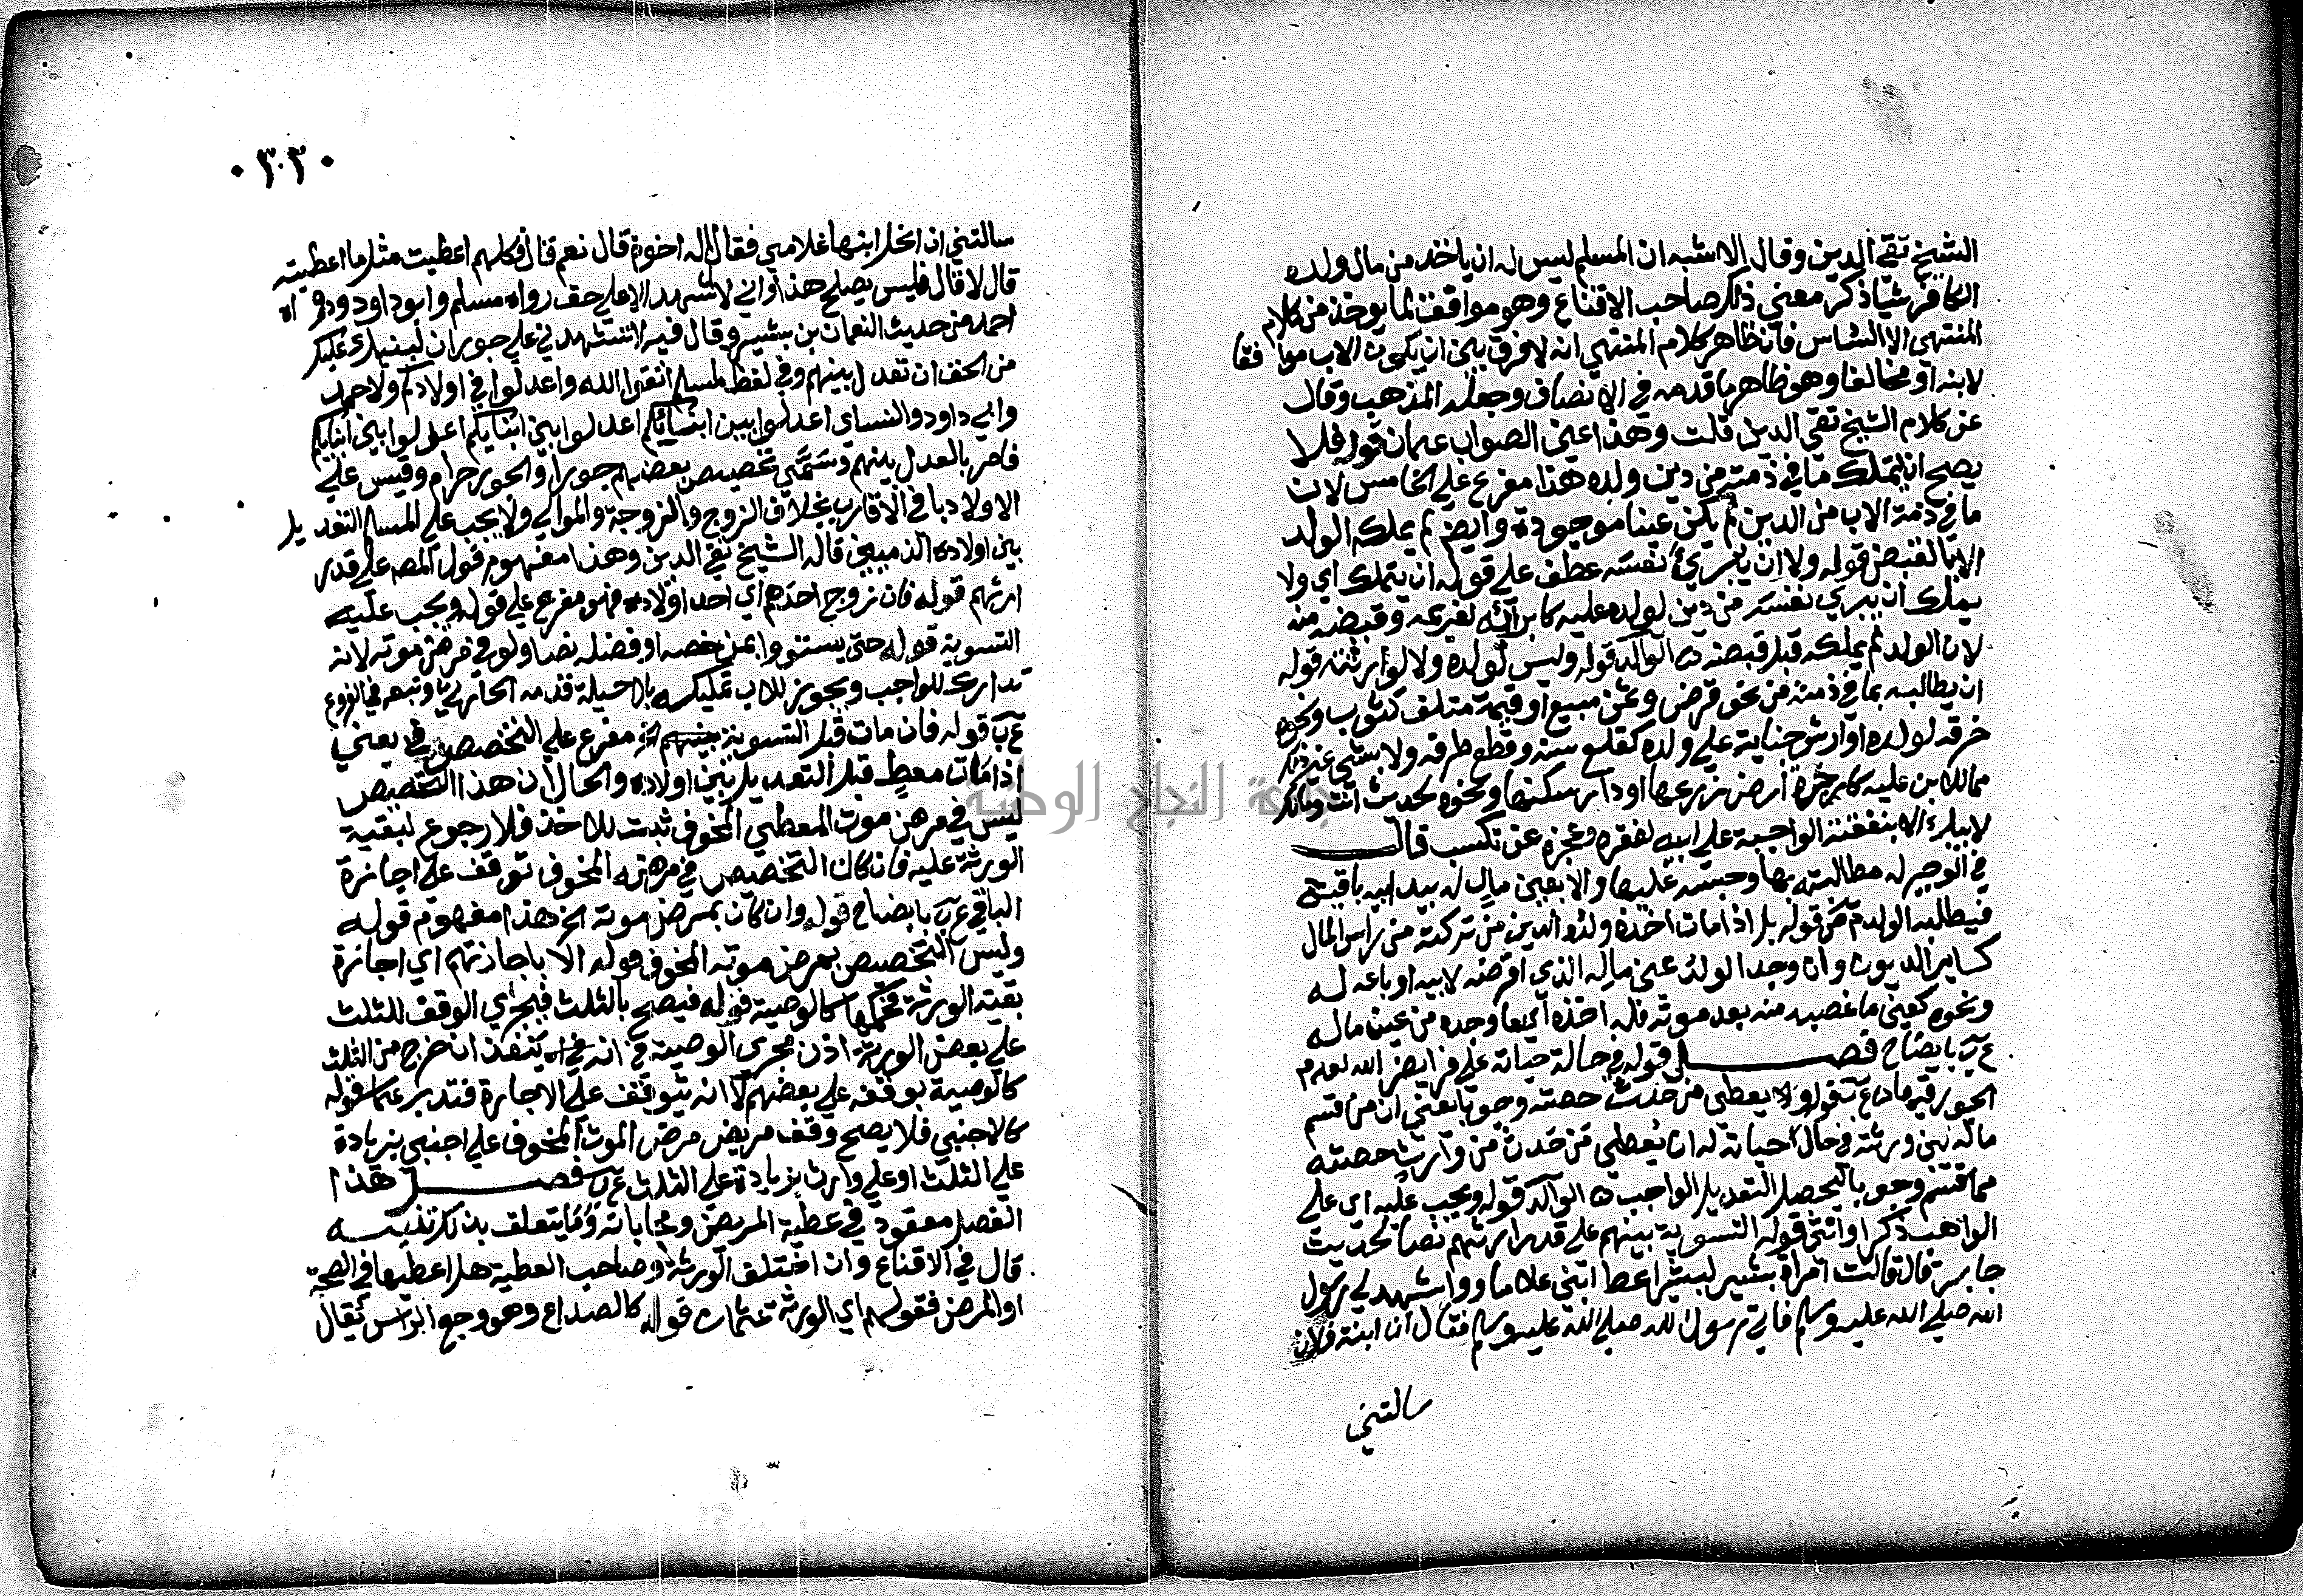 الشيخ تقي الدين وقال الاشبه ان المسلم ليس له ان ياخذ من مال ولده
الكافر شيا ذكر معنى ذلك صاحب الاقناع وهو موافق لما يوخذ من كلام
المنتهى الا الشاس فان ظاهر كلام المنتهى انه لا فرق بين ان يكون الاب موافقا
لابنه او مخالفا وهو ظاهر ما قدمه في الانصاف وجعله المذهب وقال
عن كلام الشيخ تقي الدين قلت وهذا عين الصواب عثمان قوله فلا
يصح ان يتملك ما في ذمته من دين ولده هذا مفرع على الخامس لان
ما في ذمة الاب من الدين لم يكن عينا موجودة وايضا لم يملكه الولد
الا بالقبض قوله ولا ان يبري نفسه عطف على قوله ان يتملك اي ولا
يملك ان يبري نفسه من دين لولده عليه كابرائه لغريمه وقبضه منه
لان الولد لم يملكه قبل قبضه الوالد قوله وليس لولده ولا لوارثته قوله
ان يطالبه بما في ذمته من نحو قرض وثمن مبيع او قيمة متلف كثوب ونحوه
خرقه لولده او ارش جناية على ولده كقلع سنه وقطع طرفه ولا بشي غير ذلك
مما للابن عليه كاجرة ارض زرعها او دار سكنها ونحوه لحديث انت ومالك
لابيك الا بنفقته الواجبة على ابيه لفقره وعجزه عن تكسب قال
في الوجيز له مطالبته بها وحبسه عليها والا بعين مال له بيد ابيه باقية
فيطلبه الولد قوله بل اذا مات اخذه ولده الدين من تركته من راس المال
كساير الديون وان وجد الولد عين ماله الذي اقرضه لابيه او باعه له
ونحوه كعين ما غصبه منه بعد موته فله اخذه اي ما وجده من عين ماله
ع ب بايضاح فصـــل قوله في حالة حياته على فرايض الله لعدم
الجور فيها قوله يعطى من حدث حصته وجوبا يعني ان من قسم
ماله بين ورثته في حال حياته له ان يعطي من حدث من وارث حصته
مما قسم وجوبا ليحصل التعديل الواجب الوالد قوله ويجب عليه اي على
الواهب ذكرا وانثى قوله التسوية بينهم على قدر ارثهم نصا لحديث
جابر قال قالت امراة بشير لبشير اعط ابني غلاما واشهد لي رسول
الله صلى الله عليه وسلم فاتى رسول الله صلى الله عليه وسلم فقال ان ابنة فلان
سالتني
٣٠٣
سالتني ان انحل ابنها غلامي فقال اله اخوة قال نعم قال فكلهم اعطيت مثل ما اعطيته
قال لا قال فليس يصلح هذا واني لا اشهد الا على حق رواه مسلم وابو داود ورواه
احمد من حديث النعمان بن بشير وقال فيه لا تشهدني على جور ان لبنيك عليك
من الحق ان تعدل بينهم وفي لفظ لمسلم اتقوا الله واعدلوا في اولادكم ولاحمد
وابي داود والنساي اعدلوا بين ابنائكم اعدلوا بين ابنايكم اعدلوا بين ابنايكم
فامر بالعدل بينهم وسمى تخصيص بعضهم جورا والجور حرام وقيس على
الاولاد باقي الاقارب بخلاف الزوج والزوجة والموالي ولا يجب على المسلم التعديل
بين اولاده الذميين قاله الشيخ تقي الدين وهذا مفهوم قول المص على قدر
ارثهم قوله فان زوج احدهم اي احد اولاده فهو مفرع على قوله ويجب عليه
التسوية قوله حتى يستووا بمن خصه او فضله نصا ولو في مرض موته لانه
تدارك للواجب ويجوز للاب تمليكه بلا حيلة قدمه الحارثي وتبعه في الفروع
ع ب قوله فان مات قبل التسوية بينهم مفرع على التخصيص يعني
اذا مات معط قبل التعديل بين اولاده والحال ان هذا التخصيص
ليس في مرض موت المعطي المخوف ثبت للاخذ فلا رجوع لبقية
الورثة عليه فان كان التخصيص في مرضه المخوف توقف على اجازة
الباقي ع ب بايضاح قوله وان كان بمرض موته الخ هذا مفهوم قوله
وليس التخصيص بمرض موته المخوف قوله الا باجازتهم اي اجازة
بقية الورثة فحكمها كالوصية قوله فيصح بالثلث فيجزي الوقف للثلث
على بعض الورثة اذن مجرى الوصية في انه ينفذ ان خرج من الثلث
كالوصية بوقفه على بعضهم لا انه يتوقف على الاجازة فتدبر عثمان قوله
كالاجنبي فلا يصح وقف مريض مرض الموت المخوف على اجنبي بزيادة
على الثلث او على وارث بزيادة على الثلث ع ب فصـــل هذا
الفصل معقود في عطية المريض ومحاباته وما يتعلق بذلك تنبيه
قال في الاقناع وان اختلف الورثة وصاحب العطية هل اعطيها في الصحة
او المرض فقولهم اي الورثة عثمان قوله كالصداع وهو وجع الراس يقال